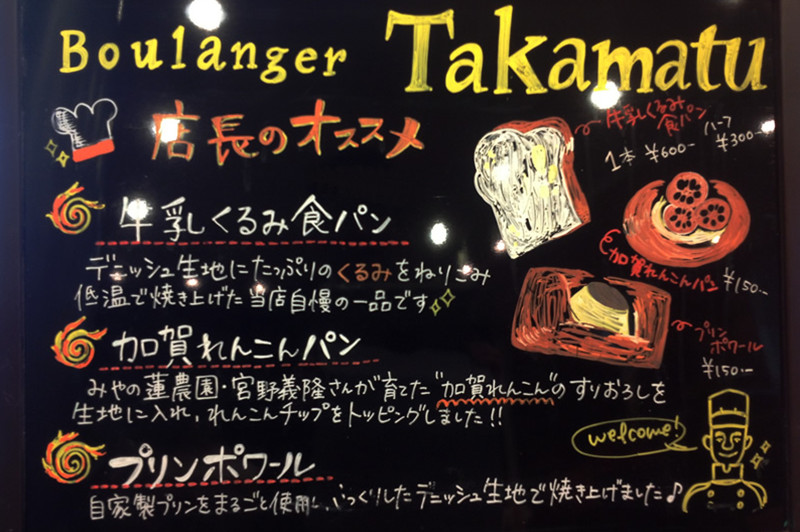 Boulanger Takamatu
店長のオススメ
牛乳くるみ食パン
デニッシュ生地にたっぷりのくるみをねりこみ
低温で焼き上げた当店自慢の一品です
加賀れんこんパン
みやの蓮農園・宮野義隆さんが育てた"加賀れんこん"のすりおろしを
生地に入れ、れんこんチップをトッピングしました!!
プリンポワール
自家製プリンをまるごと使用 っくりしたデニッシュ生地で焼き上げました♪
牛乳くるみ
食パン
1本 ¥600- ハーフ ¥300-
加賀れんこんパン
¥150-
プリン
ポワール
¥150-
welcome!